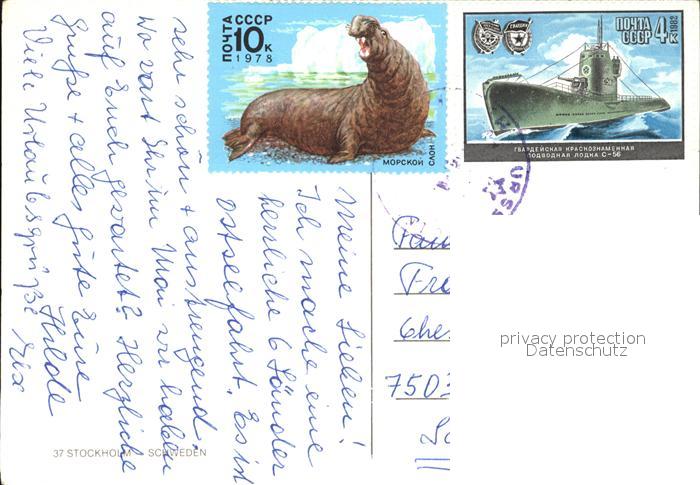 ПОЧТА СССР
10к
1978
МОРСКОЙ СЛОН
ПОЧТА 4к
СССР
1982
ГВАРДИЯ
ГВАРДЕЙСКАЯ КРАСНОЗНАМЕННАЯ
ПОДВОДНАЯ ЛОДКА С-56
Meine Lieben!
Ich mache eine
herrliche 6 Länder
Ostseefahrt. Es ist
sehr schön + anstrengend.
Wo wart Ihr im Mai wir haben
auf Euch gewartet? Herzliche
Grüße + alles gute Eure
Hilde
Viele Urlaubsgrüße
Fam
Fre
Che
7503
privacy protection
Datenschutz
37 STOCKHOLM - SCHWEDEN